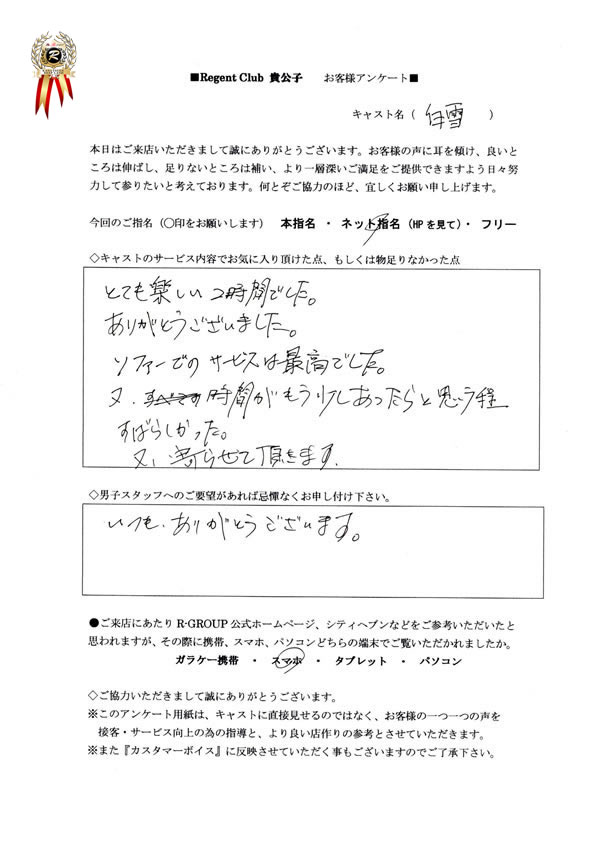 R
■Regent Club 貴公子　お客様アンケート■
キャスト名（ 白雪 ）
本日はご来店いただきまして誠にありがとうございます。お客様の声に耳を傾け、良いと
ころは伸ばし、足りないところは補い、より一層深いご満足をご提供できますよう日々努
力して参りたいと考えております。何とぞご協力のほど、宜しくお願い申し上げます。
今回のご指名（〇印をお願いします）　本指名 ・ ネット指名（HPを見て）・ フリー
◇キャストのサービス内容でお気に入り頂けた点、もしくは物足りなかった点
とても楽しい2時間でした。
ありがとうございました。
ソファーでのサービスは最高でした。
又、時間がもう少しあったらと思う程
すばらしかった。
又、寄らせて頂きます。
◇男子スタッフへのご要望があれば忌憚なくお申し付け下さい。
いつも、ありがとうございます。
●ご来店にあたり R-GROUP 公式ホームページ、シティヘブンなどをご参考いただいたと
思われますが、その際に携帯、スマホ、パソコンどちらの端末でご覧いただかれましたか。
ガラケー携帯 ・ スマホ ・ タブレット ・ パソコン
◇ご協力いただきまして誠にありがとうございます。
※このアンケート用紙は、キャストに直接見せるのではなく、お客様の一つ一つの声を
接客・サービス向上の為の指導と、より良い店作りの参考とさせていただきます。
※また『カスタマーボイス』に反映させていただく事もございますのでご了承下さい。